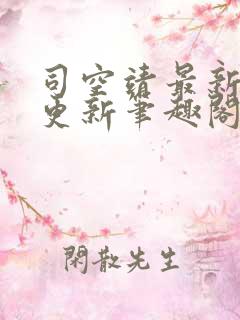 司空靖最新
更新笔趣閣
閑散先生